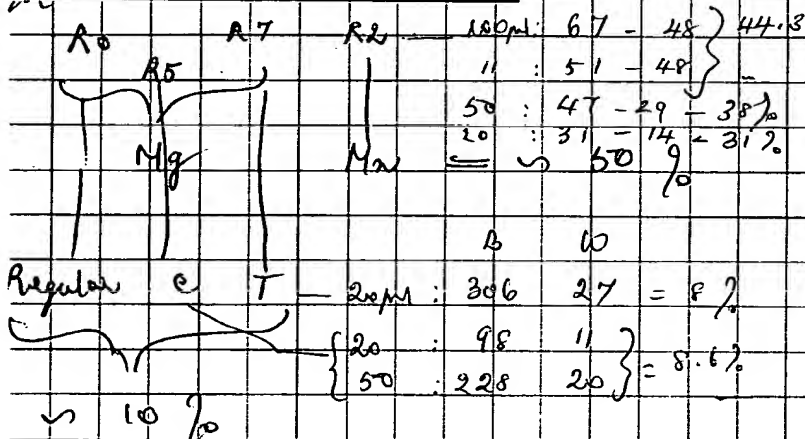 R0 R7 R2 — 100µl: 67 - 48 } 44.3
R5 11 : 51 - 48
50 : 47 - 29 - 38%
20 : 31 - 14 - 31%
Mg Mn ~ 50 %
B W
Regular C T — 20µl : 306 27 = 8%
{ 20 : 98 11 } = 8.6%
50 : 228 20
~ 10 %